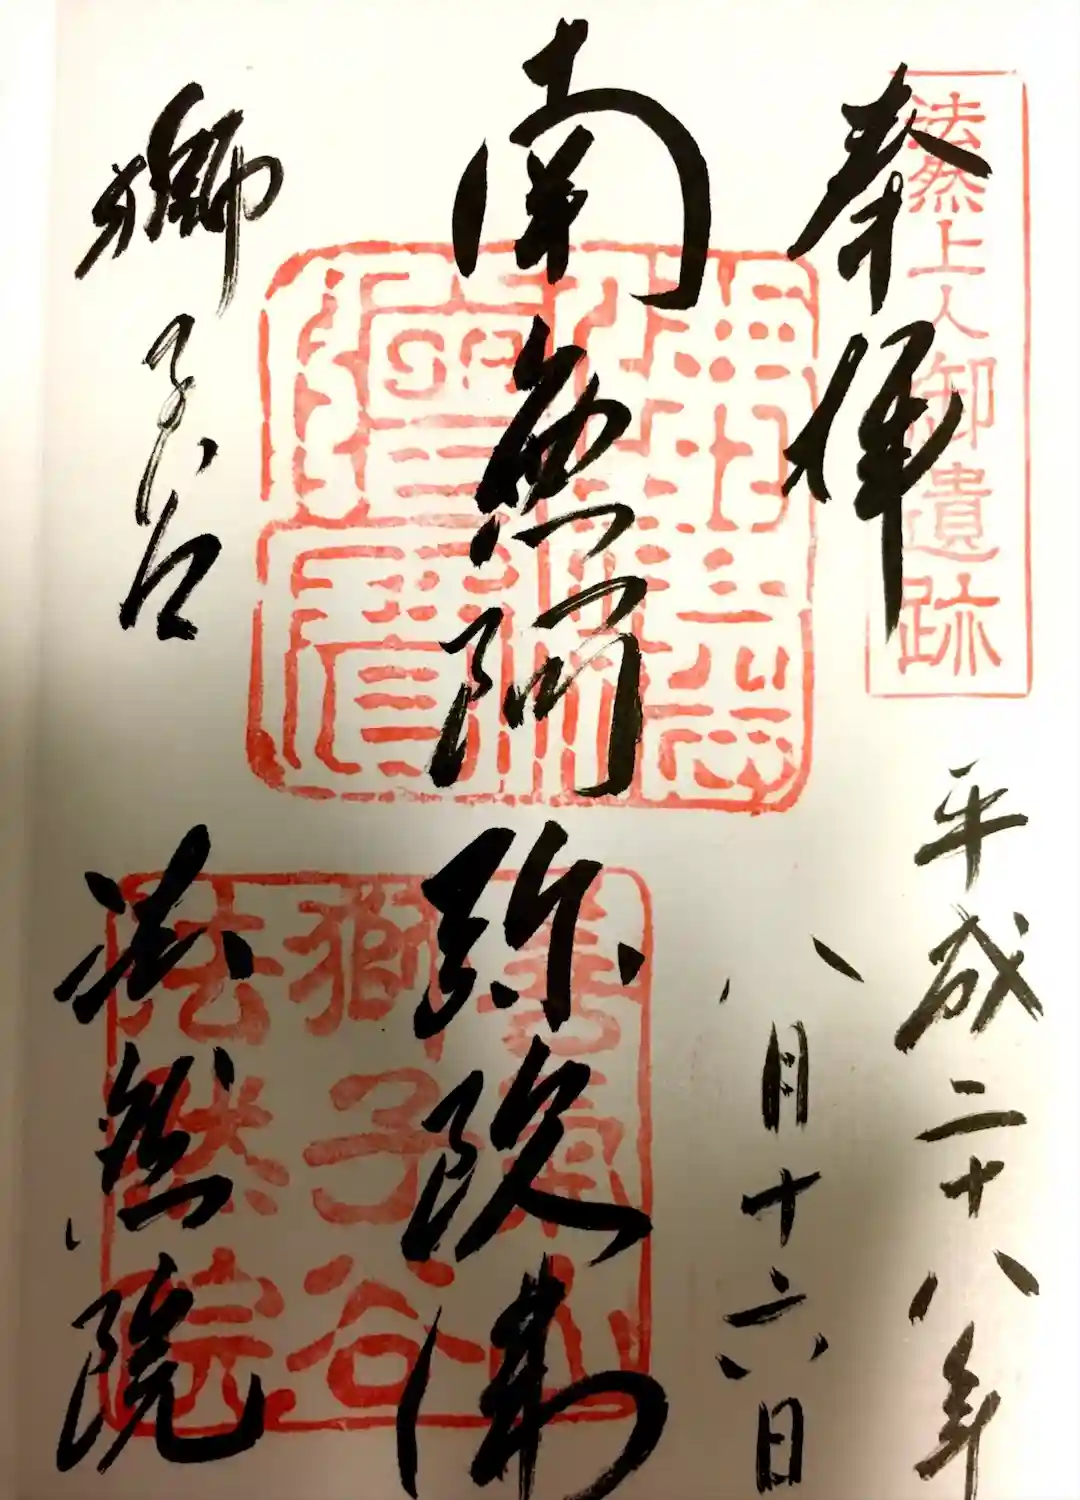 法然上人御遺跡
奉拝
平成二十八年
八月十六日
南無阿弥陀佛
獅子谷
法然院
善氣山
獅子谷
法然院